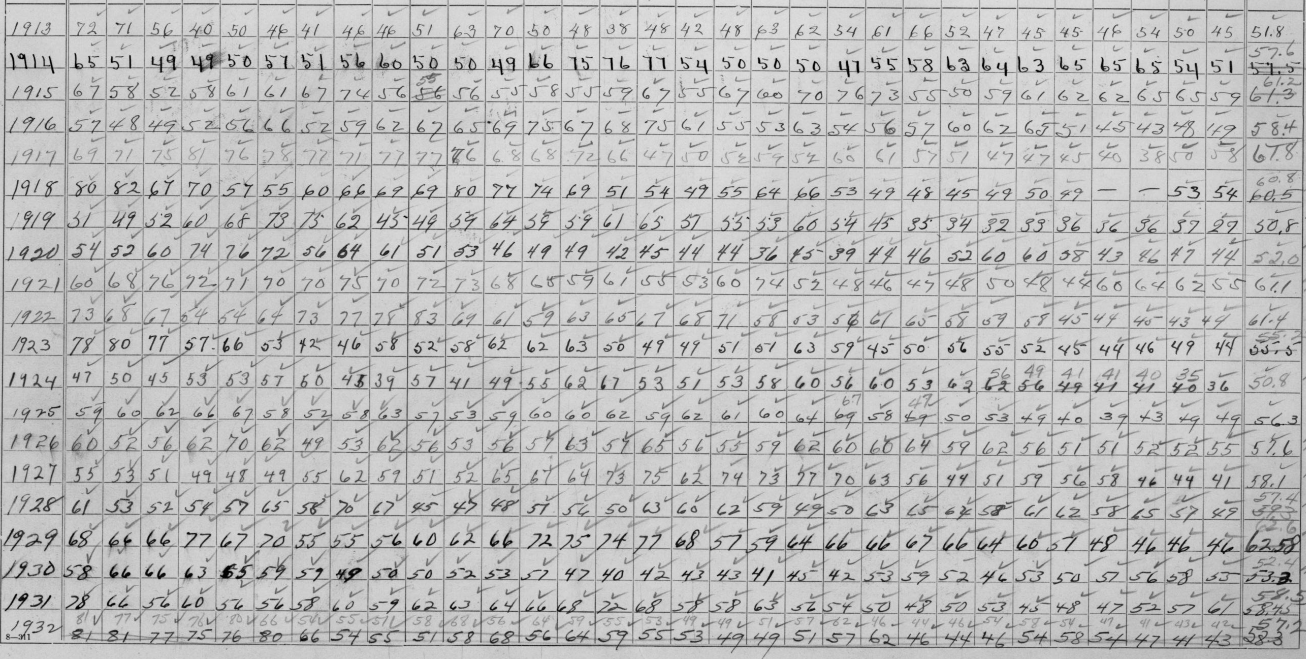 1913 72 71 56 40 50 46 41 46 46 51 63 70 50 48 38 48 42 48 63 62 34 61 66 52 47 45 45 46 54 50 45 51.8
57.6
1914 65 51 49 49 50 57 51 56 60 50 50 49 66 75 76 77 54 50 50 50 47 55 58 63 64 63 65 65 65 54 51 57.5
55 61.2
1915 67 58 52 58 61 61 67 74 56 56 56 55 58 55 59 67 55 67 60 70 76 73 55 50 59 61 62 62 65 65 59 61.3
1916 57 48 49 52 56 66 52 59 62 67 65 69 75 67 68 75 61 55 53 63 54 56 57 60 62 65 51 45 43 48 49 58.4
1917 69 71 75 81 76 78 77 71 77 77 76 68 68 72 66 47 50 52 59 52 60 61 57 51 47 47 45 40 38 50 58 67.8
60.8
1918 80 82 67 70 57 55 60 66 69 69 80 77 74 69 51 54 49 55 64 66 53 49 48 45 49 50 49 — — 53 54 60.5
1919 51 49 52 60 68 73 75 62 45 49 59 64 59 59 61 65 57 55 53 60 54 45 35 34 32 33 36 36 36 37 27 50.8
1920 54 52 60 74 76 72 56 64 61 51 53 46 49 49 42 45 44 44 36 45 39 44 46 52 60 60 58 43 46 47 44 52.0
1921 60 68 76 72 71 70 70 75 70 72 73 68 65 59 61 55 53 60 74 52 48 46 47 48 50 48 44 60 64 62 55 61.1
1922 73 68 67 54 54 64 73 77 78 83 69 61 59 63 65 67 68 71 58 53 56 61 65 58 59 58 45 44 45 43 44 61.4
1923 78 80 77 57 66 53 42 46 58 52 58 62 62 63 50 49 49 51 51 63 59 45 50 56 55 52 45 44 46 49 44 55.5
56 49 41 41 40 35
1924 47 50 45 53 53 57 60 45 39 57 41 49 55 62 67 53 51 53 58 60 56 60 53 62 62 56 49 41 41 40 36 50.8
67 47
1925 59 60 62 66 67 58 52 58 63 57 53 59 60 60 62 59 62 61 60 64 69 58 49 50 53 49 40 39 43 49 49 56.3
1926 60 52 56 62 70 62 49 53 62 56 53 56 57 63 57 65 56 55 59 62 60 60 64 59 62 56 51 51 52 52 55 57.6
1927 55 53 51 49 48 49 55 62 59 51 52 65 67 64 73 75 62 74 73 77 70 63 56 44 51 59 56 58 46 44 41 58.1
57.4
1928 61 53 52 54 57 65 58 70 67 45 47 48 51 56 50 63 60 62 59 49 50 63 65 64 58 61 62 58 65 57 49
62.6
1929 68 66 66 77 67 70 55 55 56 60 62 66 72 75 74 77 68 57 59 64 66 66 67 66 64 60 57 48 46 46 46 6258
52.4
1930 58 66 66 63 55 59 59 49 50 50 52 53 57 47 40 42 43 43 41 45 42 53 59 52 46 53 50 57 56 58 55 53.2
58.5
1931 78 66 56 60 56 56 58 60 59 62 63 64 66 68 72 68 58 58 63 56 54 50 48 50 53 45 48 47 52 57 61 58.45
81 77 75 76 80 66 54 55 51 58 68 56 64 59 55 53 49 49 51 57 62 46 44 46 54 58 54 47 41 43 42 57.2
1932 81 81 77 75 76 80 66 54 55 51 58 68 56 64 59 55 53 49 49 51 57 62 46 44 46 54 58 54 47 41 43 58.3
8—311